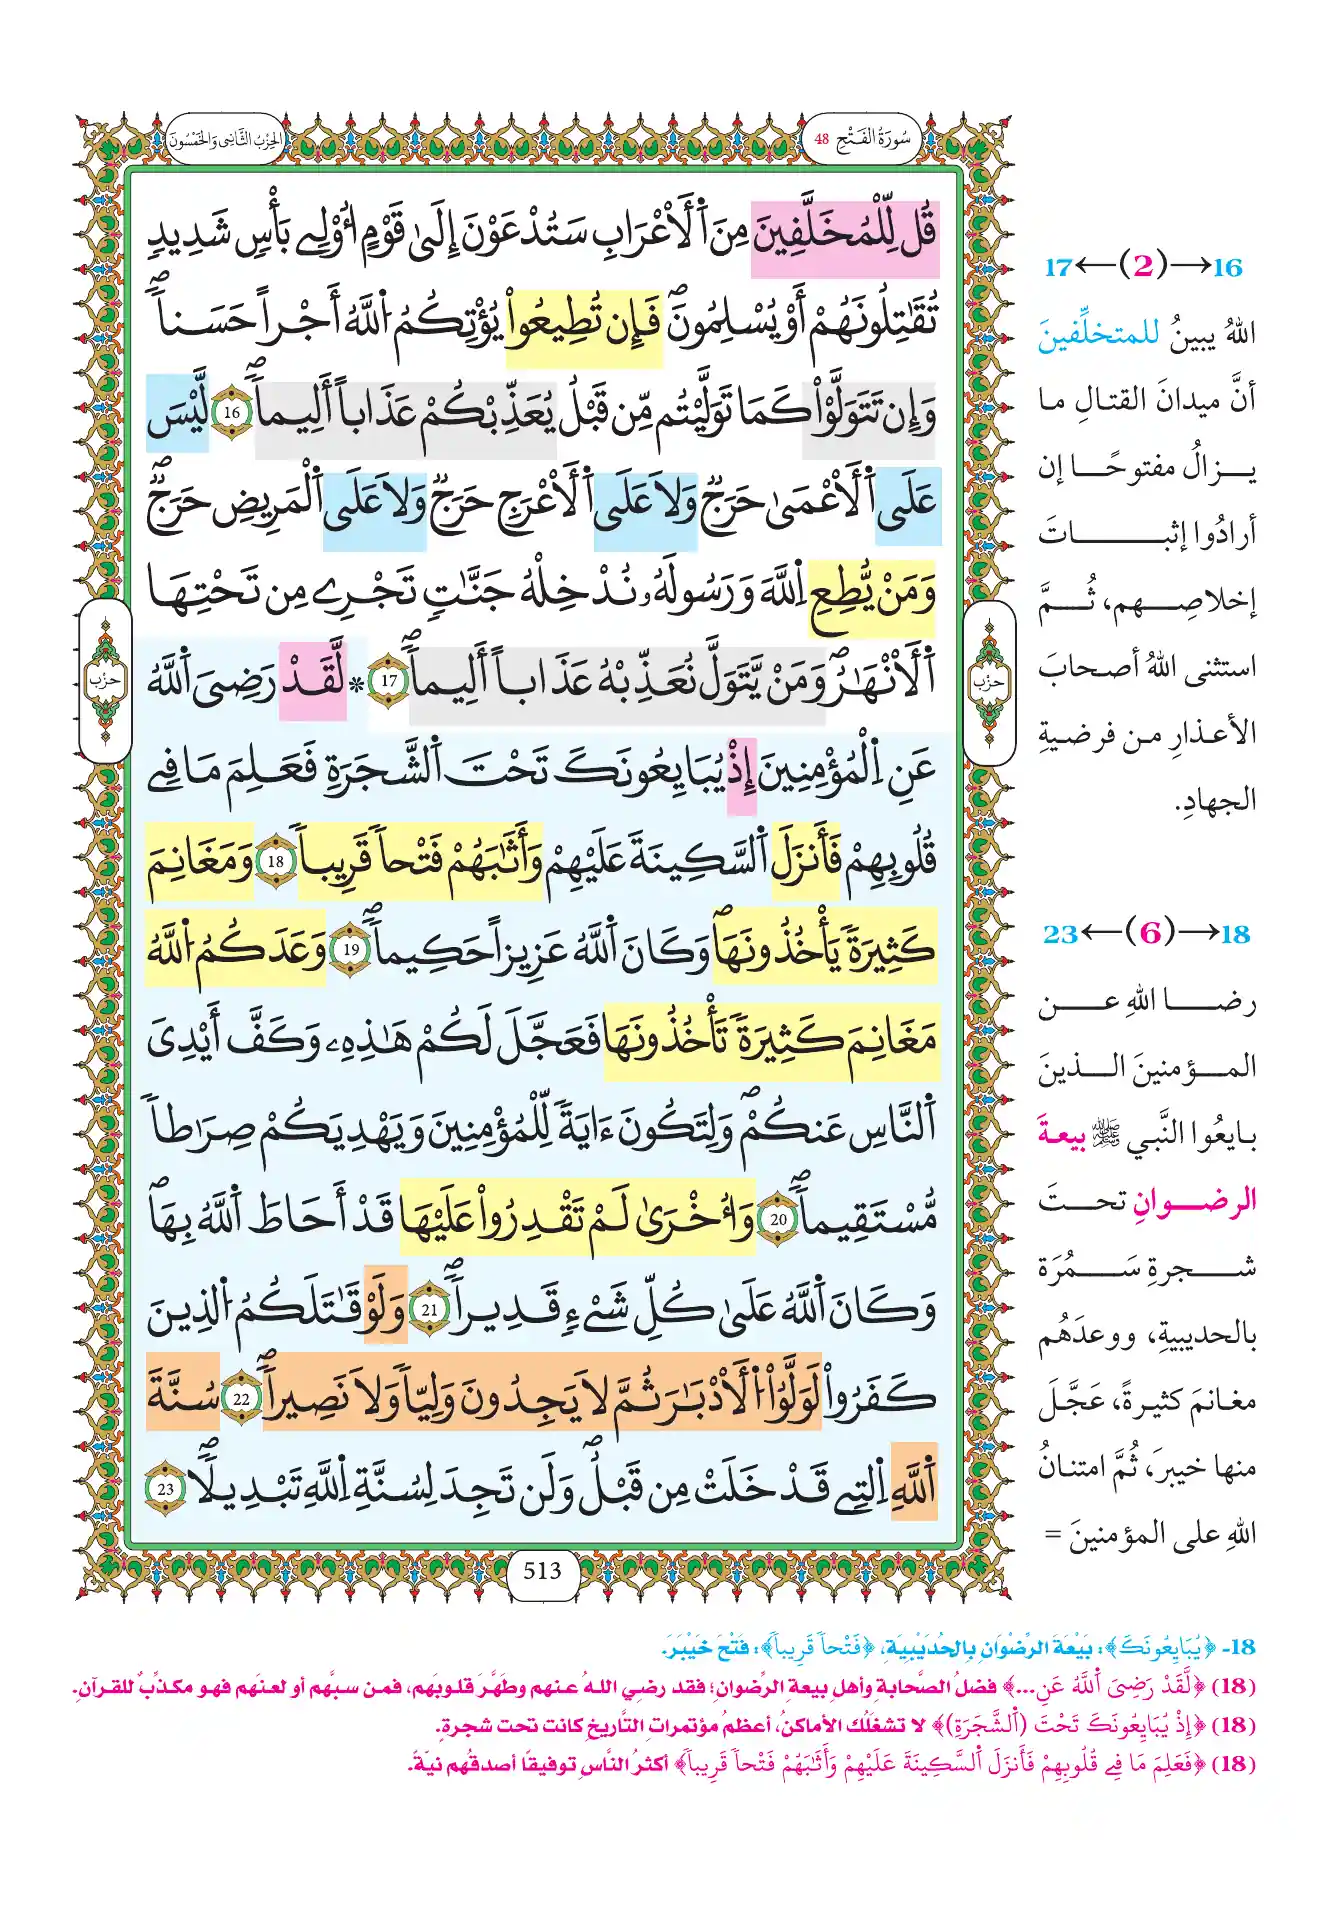 سُورَةُ الفَتْحِ 48
الحِزْبُ الثَّانِي وَالخَمْسُونَ
قُل لِّلْمُخَلَّفِينَ مِنَ اَ۬لَاعْرَابِ سَتُدْعَوْنَ إِلَىٰ قَوْمٍ ا۟وْلِے بَأْسٖ شَدِيدٖ
تُقَٰتِلُونَهُمُۥٓ أَوْ يُسْلِمُونَۖ فَإِن تُطِيعُواْ يُؤْتِكُمُ اُ۬للَّهُ أَجْراً حَسَناٗۖ
وَإِن تَتَوَلَّوْاْ كَمَا تَوَلَّيْتُم مِّن قَبْلُ يُعَذِّبْكُمْ عَذَاباً أَلِيماٗۖ 16 لَّيْسَ
عَلَى اَ۬لَاعْمَىٰ حَرَجٞ وَلَا عَلَى اَ۬لَاعْرَجِ حَرَجٞ وَلَا عَلَى اَ۬لْمَرِيضِ حَرَجٞۖ
وَمَنْ يُّطِعِ اِ۬للَّهَ وَرَسُولَهُۥ نُدْخِلْهُ جَنَّٰتٖ تَجْرِے مِن تَحْتِهَا
اَ۬لَانْهَٰرُۖ وَمَنْ يَّتَوَلَّ نُعَذِّبْهُ عَذَاباً أَلِيماٗۖ 17 * لَّقَدْ رَضِيَ اَ۬للَّهُ
عَنِ اِ۬لْمُؤْمِنِينَ إِذْ يُبَايِعُونَكَ تَحْتَ اَ۬لشَّجَرَةِ فَعَلِمَ مَا فِے
قُلُوبِهِمْ فَأَنزَلَ اَ۬لسَّكِينَةَ عَلَيْهِمْ وَأَثَٰبَهُمْ فَتْحاٗ قَرِيباٗ 18 وَمَغَانِمَ
كَثِيرَةٗ يَأْخُذُونَهَاۖ وَكَانَ اَ۬للَّهُ عَزِيزاً حَكِيماٗۖ 19 وَعَدَكُمُ اُ۬للَّهُ
مَغَانِمَ كَثِيرَةٗ تَأْخُذُونَهَا فَعَجَّلَ لَكُمْ هَٰذِهِۦ وَكَفَّ أَيْدِيَ
اَ۬لنَّاسِ عَنكُمْۖ وَلِتَكُونَ ءَايَةٗ لِّلْمُؤْمِنِينَ وَيَهْدِيَكُمْ صِرَٰطاٗ
مُّسْتَقِيماٗۖ 20 وَأُخْرَىٰ لَمْ تَقْدِرُواْ عَلَيْهَا قَدْ أَحَاطَ اَ۬للَّهُ بِهَاۖ
وَكَانَ اَ۬للَّهُ عَلَىٰ كُلِّ شَےْءٖ قَدِيراٗۖ 21 وَلَوْ قَٰتَلَكُمُ اُ۬لذِينَ
كَفَرُواْ لَوَلَّوُاْ اُ۬لَادْبَٰرَ ثُمَّ لَا يَجِدُونَ وَلِيّاٗ وَلَا نَصِيراٗۖ 22 سُنَّةَ
اَ۬للَّهِ اِ۬لتِے قَدْ خَلَتْ مِن قَبْلُۖ وَلَن تَجِدَ لِسُنَّةِ اِ۬للَّهِ تَبْدِيلاٗۖ 23
حزب
حزب
513
16→(2)←17
اللهُ يبينُ للمتخلِّفينَ
أنَّ ميدانَ القتالِ ما
يزالُ مفتوحًا إن
أرادُوا إثباتَ
إخلاصِهم، ثُمَّ
استثنى اللهُ أصحابَ
الأعذارِ من فرضيةِ
الجهادِ.
18→(6)←23
رضا اللهِ عن
المؤمنينَ الذينَ
بايعُوا النَّبي ﷺ بيعةَ
الرضوانِ تحتَ
شجرةِ سَمُرَة
بالحديبيةِ، ووعدَهُم
مغانمَ كثيرةً، عَجَّلَ
منها خيبرَ، ثُمَّ امتنانُ
اللهِ على المؤمنينَ =
18- ﴿يُبَايِعُونَكَ﴾: بَيْعَةَ الرِّضْوَانِ بِالحُدَيْبِيَةِ، ﴿فَتْحاٗ قَرِيباٗ﴾: فَتْحَ خَيْبَرَ.
(18) ﴿لَّقَدْ رَضِيَ اَ۬للَّهُ عَنِ...﴾ فضلُ الصَّحابةِ وأهلِ بيعةِ الرِّضوانِ؛ فقد رضِي اللهُ عنهم وطهَّرَ قلوبَهم، فمن سبَّهم أو لعنَهم فهو مكذِّبٌ للقرآنِ.
(18) ﴿إِذْ يُبَايِعُونَكَ تَحْتَ (اَ۬لشَّجَرَةِ)﴾ لا تشغَلْك الأماكنُ، أعظمُ مؤتمراتِ التَّأريخِ كانت تحت شجرةٍ.
(18) ﴿فَعَلِمَ مَا فِے قُلُوبِهِمْ فَأَنزَلَ اَ۬لسَّكِينَةَ عَلَيْهِمْ وَأَثَٰبَهُمْ فَتْحاٗ قَرِيباٗ﴾ أكثرُ النَّاسِ توفيقًا أصدقُهم نيّةً.